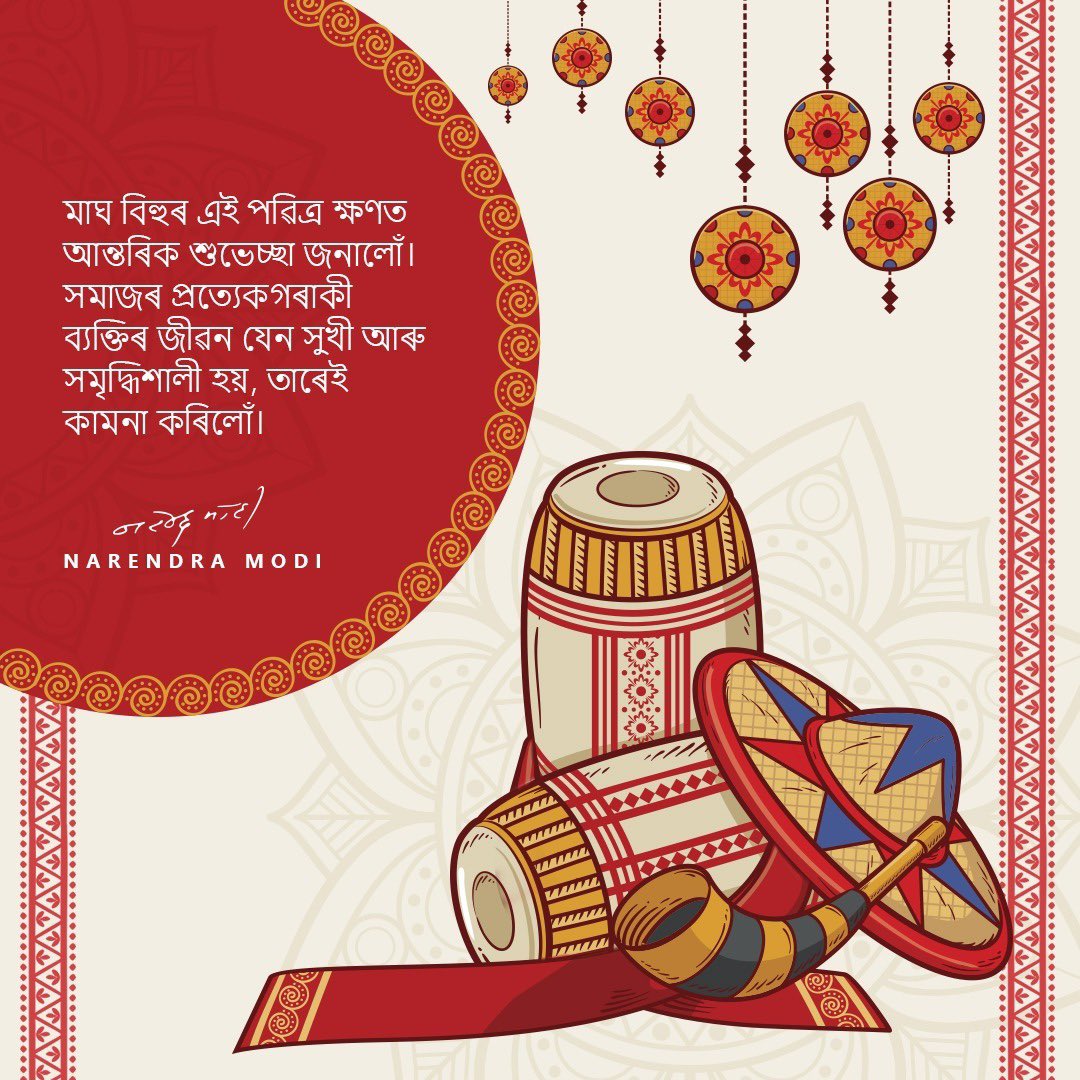 মাঘ বিহুৰ এই পৱিত্ৰ ক্ষণত
আন্তৰিক শুভেচ্ছা জনালোঁ।
সমাজৰ প্ৰত্যেকগৰাকী
ব্যক্তিৰ জীৱন যেন সুখী আৰু
সমৃদ্ধিশালী হয়, তাৰেই
কামনা কৰিলোঁ।
NARENDRA MODI